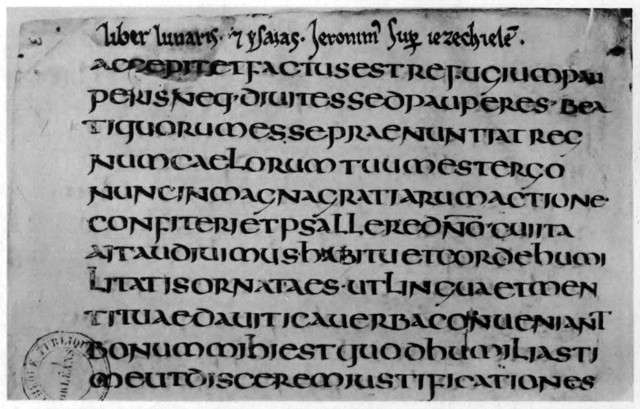 liber lunaris · ⁊ ysaias. Jeronimꝰ Sup̱ iezechielē.
ACCEPITETFACTUSESTREFUGIUMPAU
PERISNEQ·DIUITESSEDPAUPERES·BEA
TIQUORUMESSEPRAENUNTIATREG
NUMCAELORUMTUUMESTERGO
NUNCINMAGNAGRATIARUMACTIONE·
CONFITERIETPSALLEREDN̄O·CUIITA
AITAUDIUIMUSHABITUETCORDEHUMI
LITATISORNATAES·UTLINGUAETMEN
TITUAEDAUITICAUERBACONUENIANT
BONUMMIHIESTQUODHUMILIASTI
MEUTDISCEREMIUSTIFICATIONES
ORLÉANS